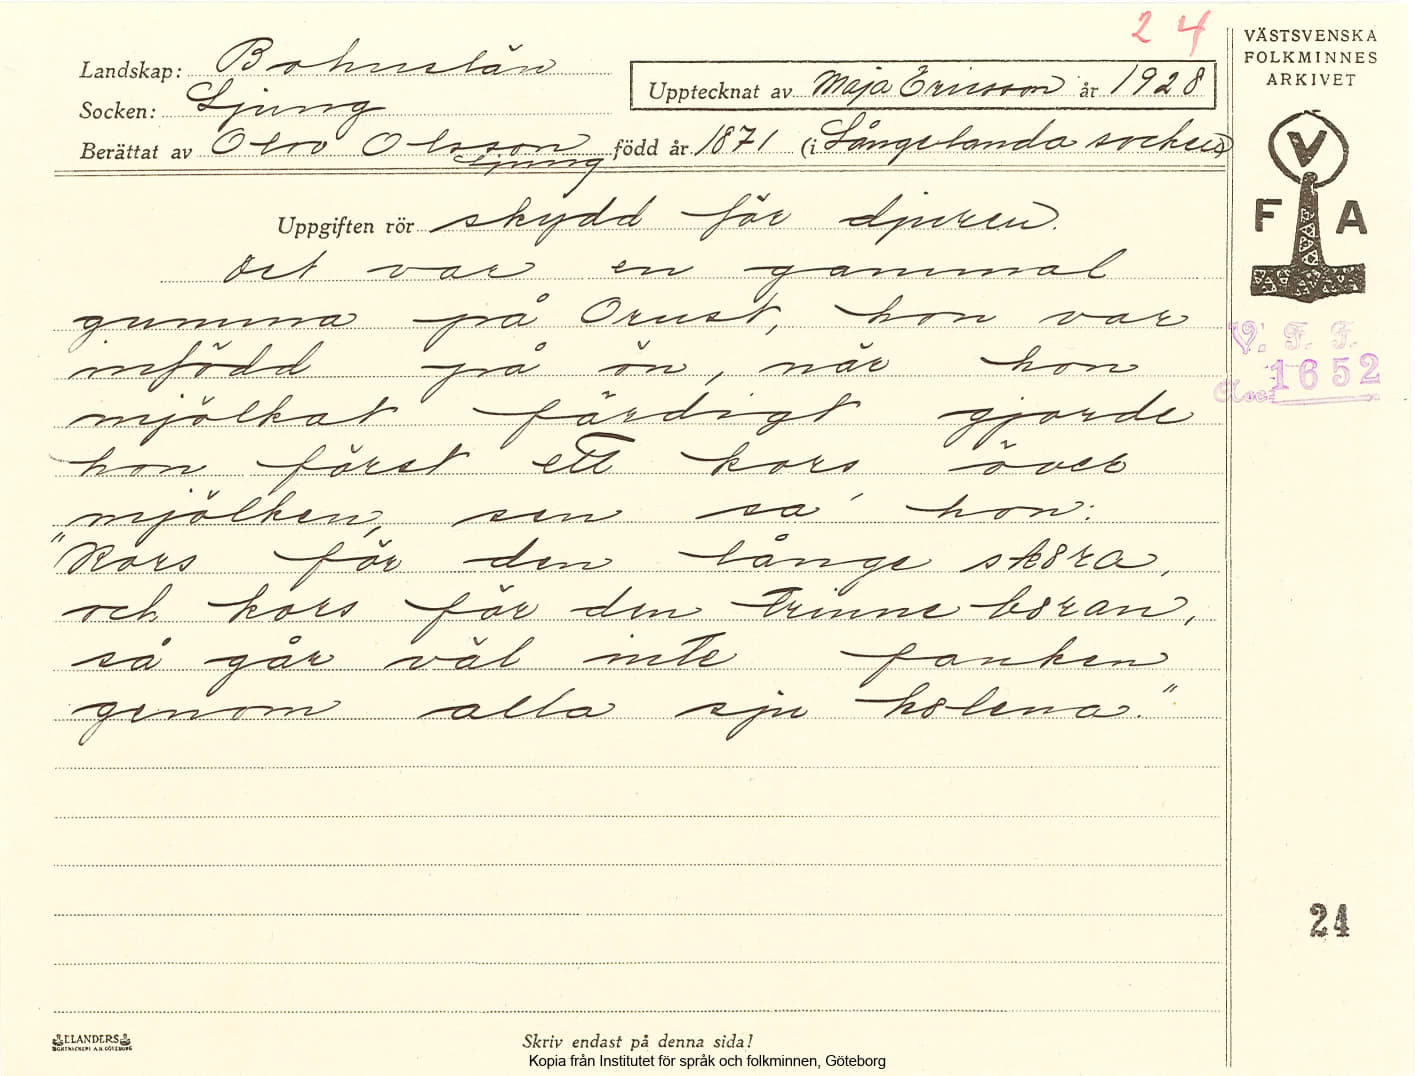 24
VÄSTSVENSKA
FOLKMINNES
ARKIVET
Landskap: Bohuslän
Upptecknat av Maja Ericsson år 1928
Socken: Ljung
Berättat av Olov Olsson född år 1871 (i Långelanda socken)
Ljung
V
F A
Uppgiften rör skydd för djuren.
Det var en gammal
gumma på Orust, hon var
infödd på ön, när hon
mjölkat färdigt gjorde
hon först ett kors över
mjölken, sen sa hon:
"Kors för den långe sk8ra,
och kors för den trinne b8ran,
så går väl inte fanken
genom alla sju h8lena."
V. F. F.
Acc. 1652
24
ELANDERS
BOKTRYCKERI A.B. GÖTEBORG
Skriv endast på denna sida!
Kopia från Institutet för språk och folkminnen, Göteborg